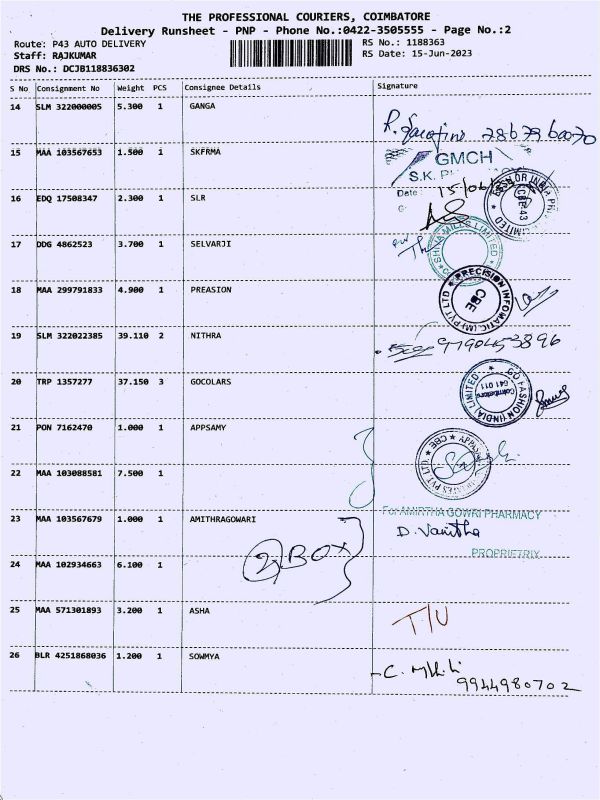 THE PROFESSIONAL COURIERS, COIMBATORE
Delivery Runsheet - PNP - Phone No.:0422-3505555 - Page No.:2
Route: P43 AUTO DELIVERY
RS No.: 1188363
Staff: RAJKUMAR
RS Date: 15-Jun-2023
DRS No.: DCJB118836302
S No Consignment No Weight PCS Consignee Details Signature
14 SLM 322000005 5.300 1 GANGA
15 MAA 103567653 1.500 1 SKFRMA
GMCH
S.K.
Date: 15/06/
16 EDQ 17508347 2.300 1 SLR
17 DDG 4862523 3.700 1 SELVARJI
SHIVA MILLS LIMITED
18 MAA 299791833 4.900 1 PREASION
PRECISION INFOMATIC (M) PVT LTD
CBE
19 SLM 322022385 39.110 2 NITHRA
20 TRP 1357277 37.150 3 GOCOLARS
GO FASHION (INDIA) LIMITED
Coimbatore
641 011
21 PON 7162470 1.000 1 APPSAMY
22 MAA 103088581 7.500 1
23 MAA 103567679 1.000 1 AMITHRAGOWARI
For AMIRTHA GOWRI PHARMACY
D. Vanitha
PROPRIETRIX
2 BOX
24 MAA 102934663 6.100 1
25 MAA 571301893 3.200 1 ASHA
T/U
26 BLR 4251868036 1.200 1 SOWMYA
9944980702